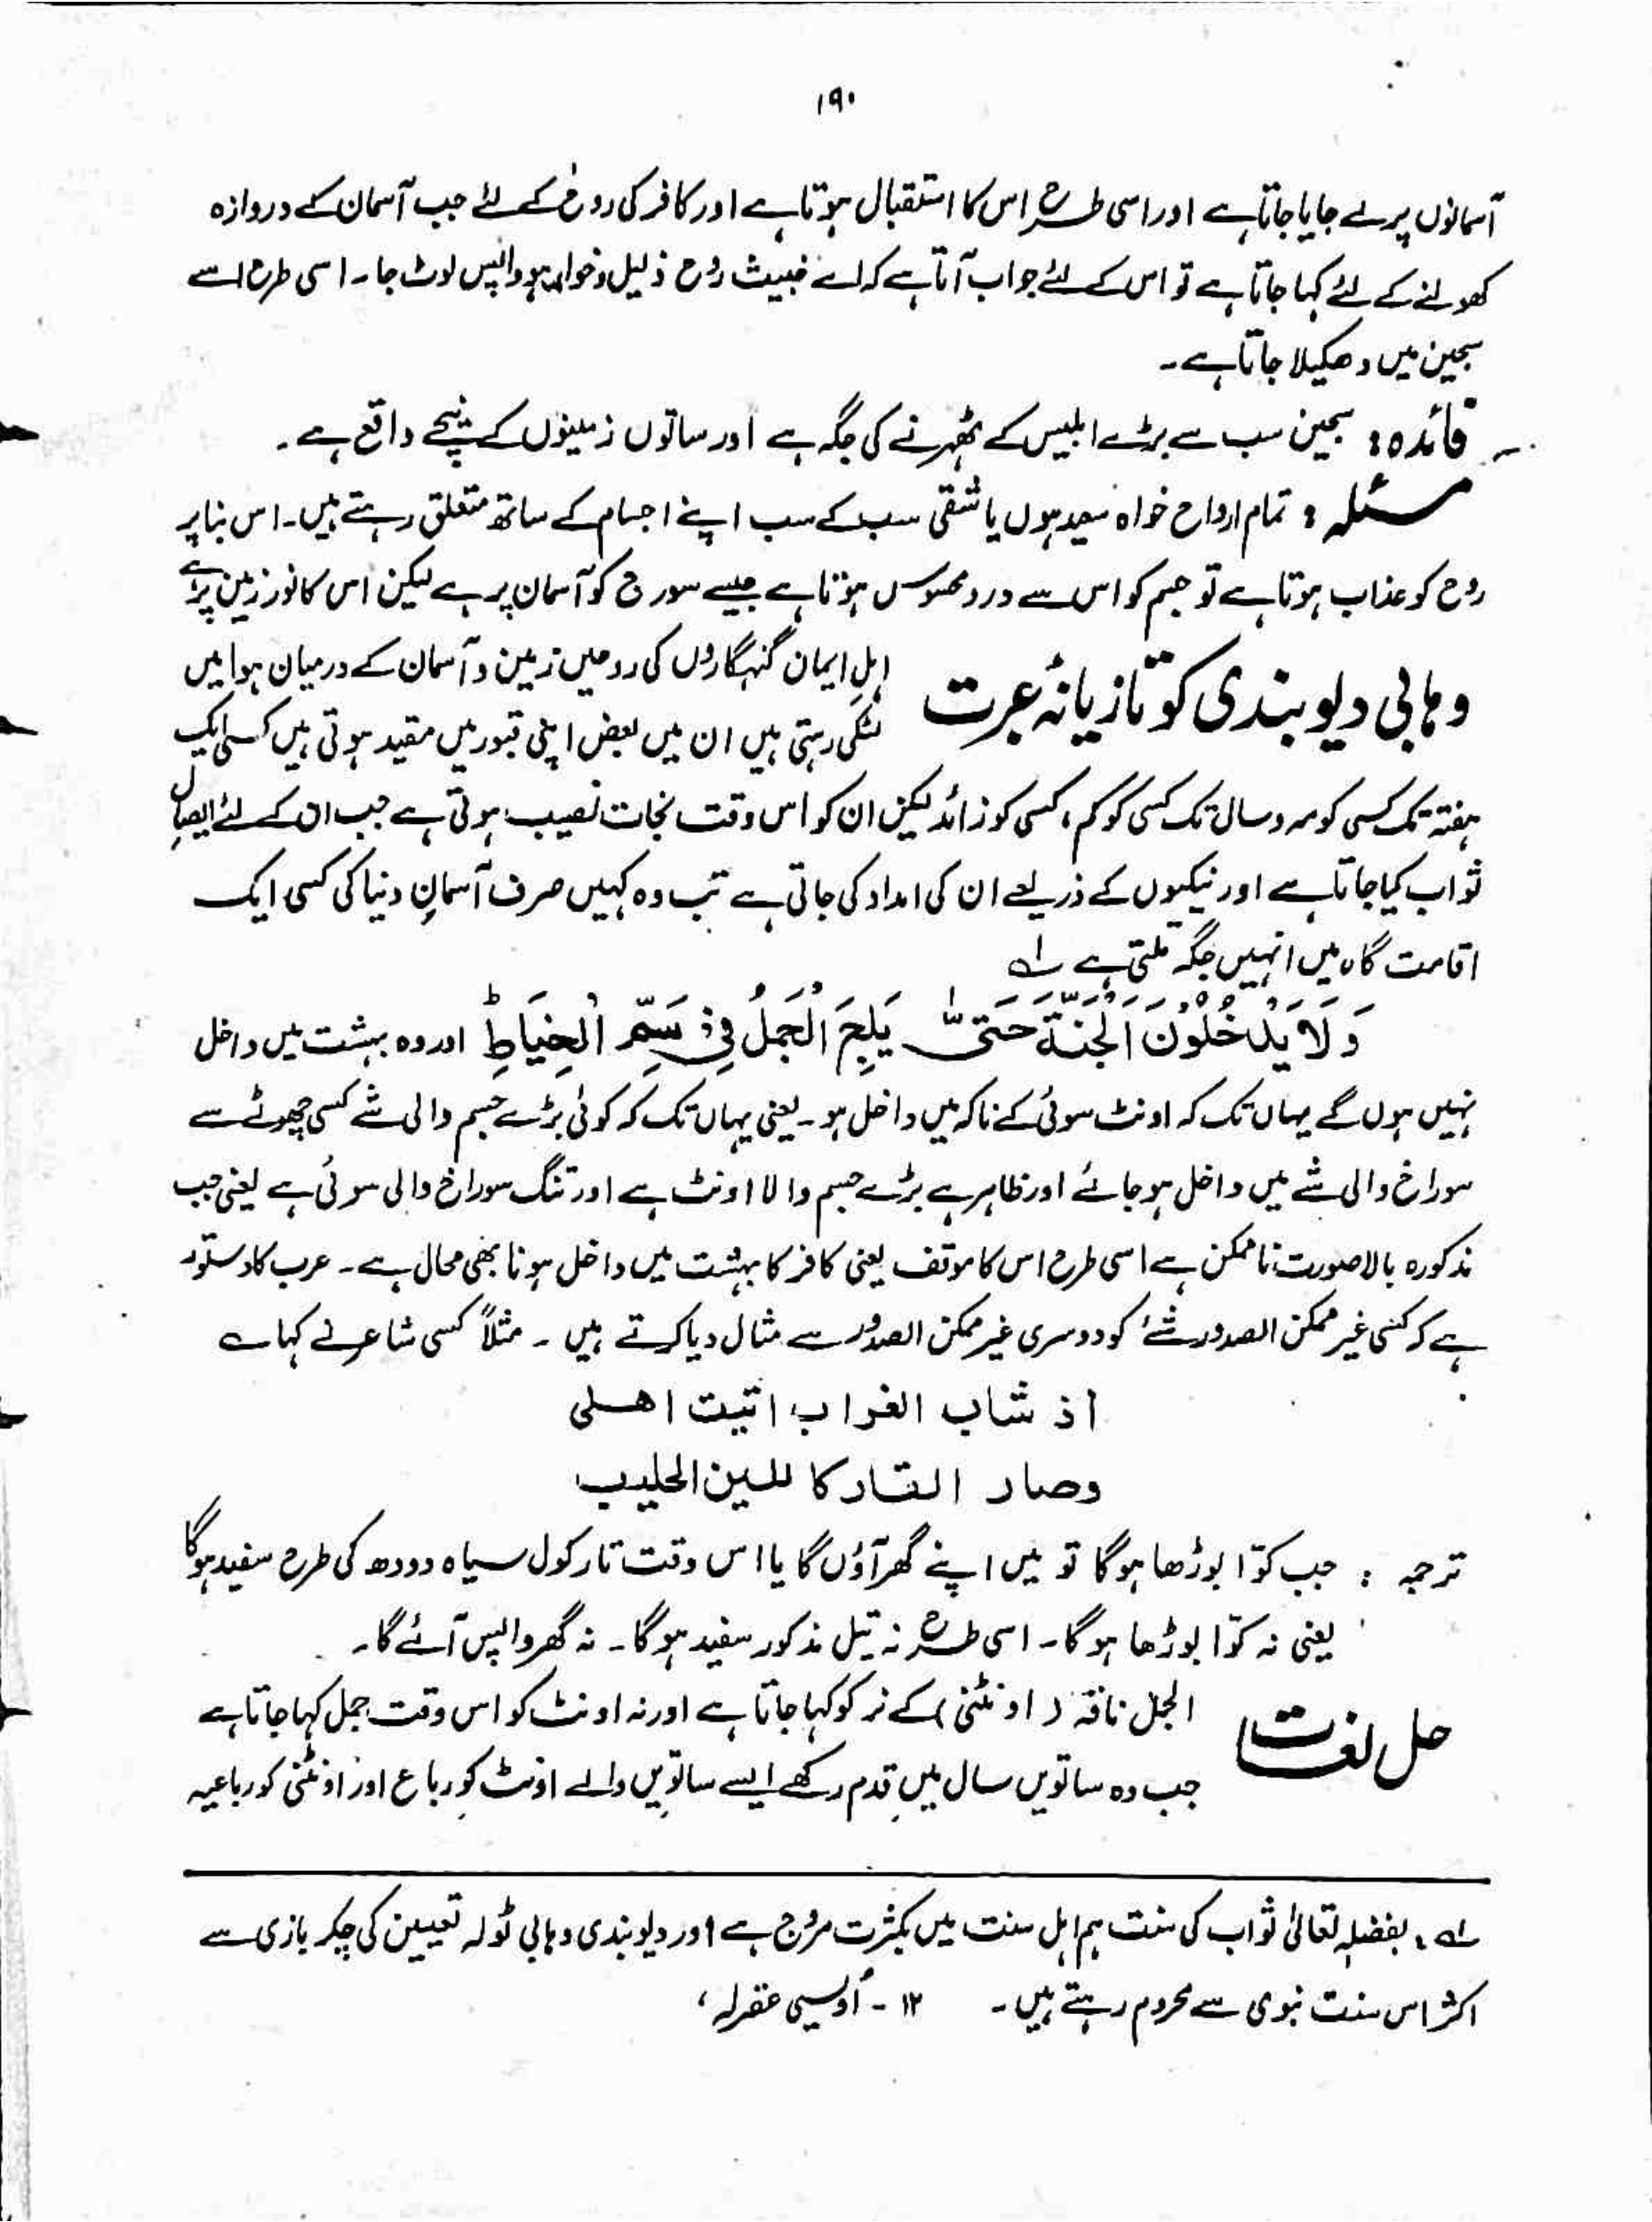 ۱۹۰
آسمانوں پر لے جایا جاتا ہے اور اسی طرح اس کا استقبال ہوتا ہے اور کافر کی روح کے لئے جب آسمان کے دروازہ
کھولنے کے لئے کہا جاتا ہے تو اس کے لئے جواب آتا ہے کہ اے خبیث روح ذلیل و خوار ہو واپس لوٹ جا۔ اسی طرح اسے
سجین میں دھکیلا جاتا ہے۔
فائدہ : سجین سب سے بڑے ابلیس کے ٹھہرنے کی جگہ ہے اور ساتوں زمینوں کے نیچے واقع ہے۔
مسئلہ : تمام ارواح خواہ سعید ہوں یا شقی سب کے سب اپنے اجسام کے ساتھ متعلق رہتے ہیں۔ اس بنا پر
روح کو عذاب ہوتا ہے تو جسم کو اس سے درد محسوس ہوتا ہے جیسے سورج کو آسمان پر ہے لیکن اس کا نور زمین پر ہے
وہابی دیوبندی کو تازیانۂ عبرت
اہلِ ایمان گنہگاروں کی روحیں زمین و آسمان کے درمیان ہوا میں
لٹکی رہتی ہیں ان میں بعض اپنی قبور میں مقید ہوتی ہیں کسی ایک
ہفتہ تک کسی کو سہ دو سال تک کسی کو کم، کسی کو زائد لیکن ان کو اس وقت نجات نصیب ہوتی ہے جب ان کے لئے ایصالِ
ثواب کیا جاتا ہے اور نیکیوں کے ذریعے ان کی امداد کی جاتی ہے تب وہ کہیں صرف آسمانِ دنیا کی کسی ایک
اقامت گاہ میں انہیں جگہ ملتی ہے لہ
وَلَا یَدْخُلُوْنَ الْجَنَّةَ حَتّٰى یَلِجَ الْجَمَلُ فِیْ سَمِّ الْخِیَاطِ ط اور وہ بہشت میں داخل
نہیں ہوں گے یہاں تک کہ اونٹ سوئی کے ناکہ میں داخل ہو۔ یعنی یہاں تک کہ کوئی بڑے جسم والی شے کسی چھوٹے سے
سوراخ والی شے میں داخل ہو جائے اور ظاہر ہے بڑے جسم والا اونٹ ہے اور تنگ سوراخ والی سوئی ہے یعنی جب
مذکورہ بالا صورت ناممکن ہے اسی طرح اس کا موقف یعنی کافر کا بہشت میں داخل ہونا بھی محال ہے۔ عرب کا دستور
ہے کہ کسی غیر ممکن الصدور شئے کو دوسری غیر ممکن الصدور سے مثال دیا کرتے ہیں۔ مثلاً کسی شاعر نے کہا ے
اذ شاب الغراب اتیت اھلی
وصار القار کا للبن الحلیب
ترجمہ : جب کوّا بوڑھا ہو گا تو میں اپنے گھر آؤں گا یا اس وقت تارکول سیاہ دودھ کی طرح سفید ہو گا
یعنی نہ کوّا بوڑھا ہو گا۔ اسی طرح نہ تیل مذکور سفید ہو گا۔ نہ گھر واپس آئے گا۔
حل لغات
الجمل ناقہ (اونٹنی) کے نر کو کہا جاتا ہے اور نہ اونٹ کو اس وقت جمل کہا جاتا ہے
جب وہ ساتویں سال میں قدم رکھے ایسے ساتویں والے اونٹ کو رباع اور اونٹنی کو رباعیہ
لہ : بفضلہٖ تعالیٰ ثواب کی سنت ہم اہل سنت میں بکثرت مروج ہے اور دیوبندی وہابی ٹولہ تعیین کی چکر بازی سے
اکثر اس سنت نبوی سے محروم رہتے ہیں۔ ۱۲ - اُویسی غفرلہ،